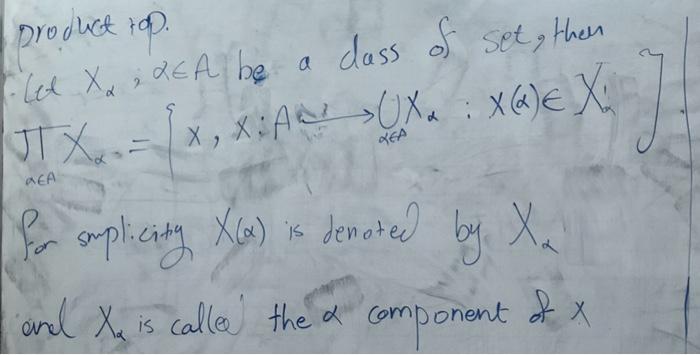 product top.
Let Xα, α∈A be a class of set, then
∏α∈A Xα = { x, x: A ⟶ ⋃α∈A Xα : x(α) ∈ Xα }
for smplicity X(α) is denoted by Xα
and Xα is called the α component of x